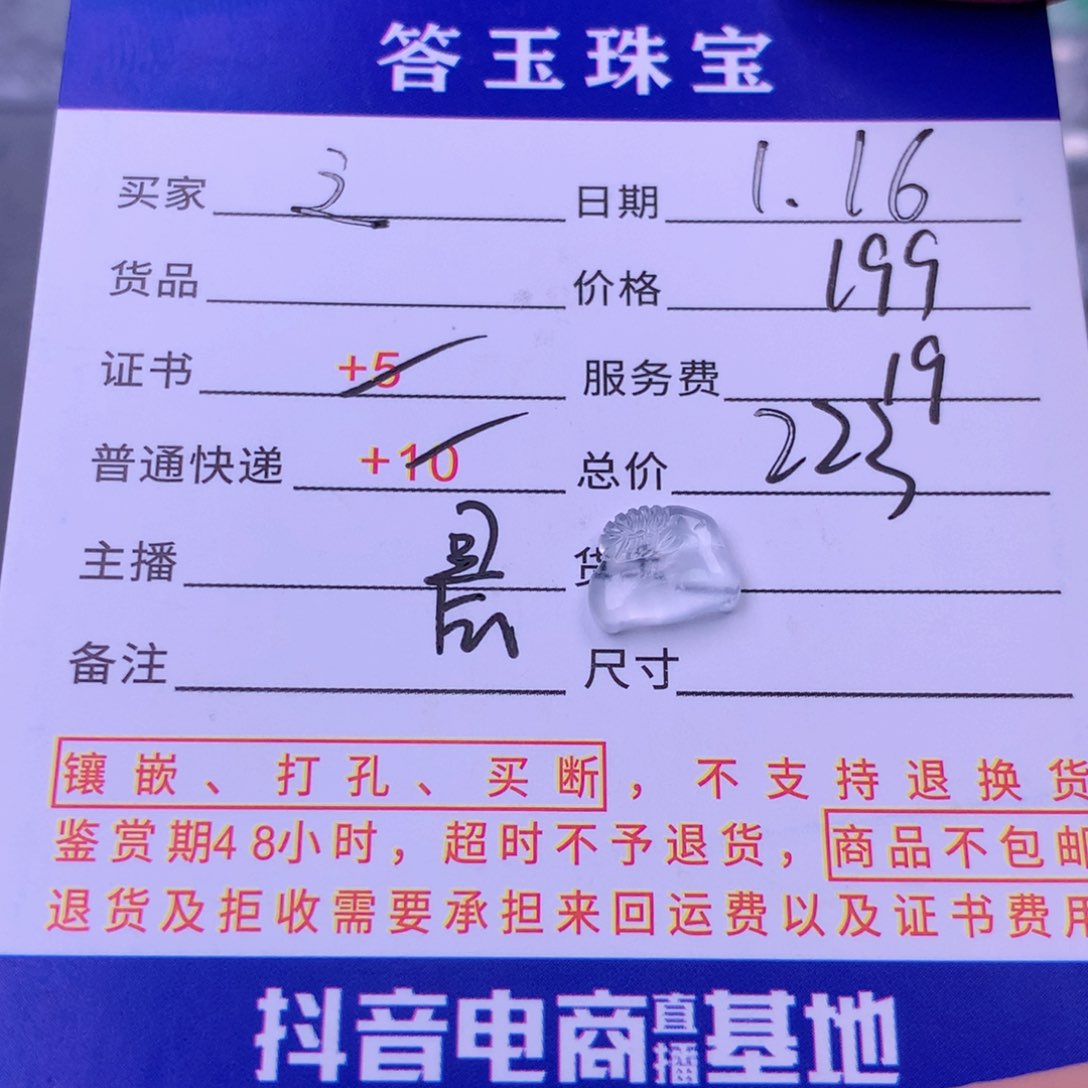 答玉珠宝
买家 2 日期 1.16
货品 价格 199
证书 +5 服务费 19
普通快递 +10 总价 223
主播 货
备注 尺寸
镶嵌、打孔、买断，不支持退换货
鉴赏期48小时，超时不予退货，商品不包邮
退货及拒收需要承担来回运费以及证书费用
抖音电商直播基地